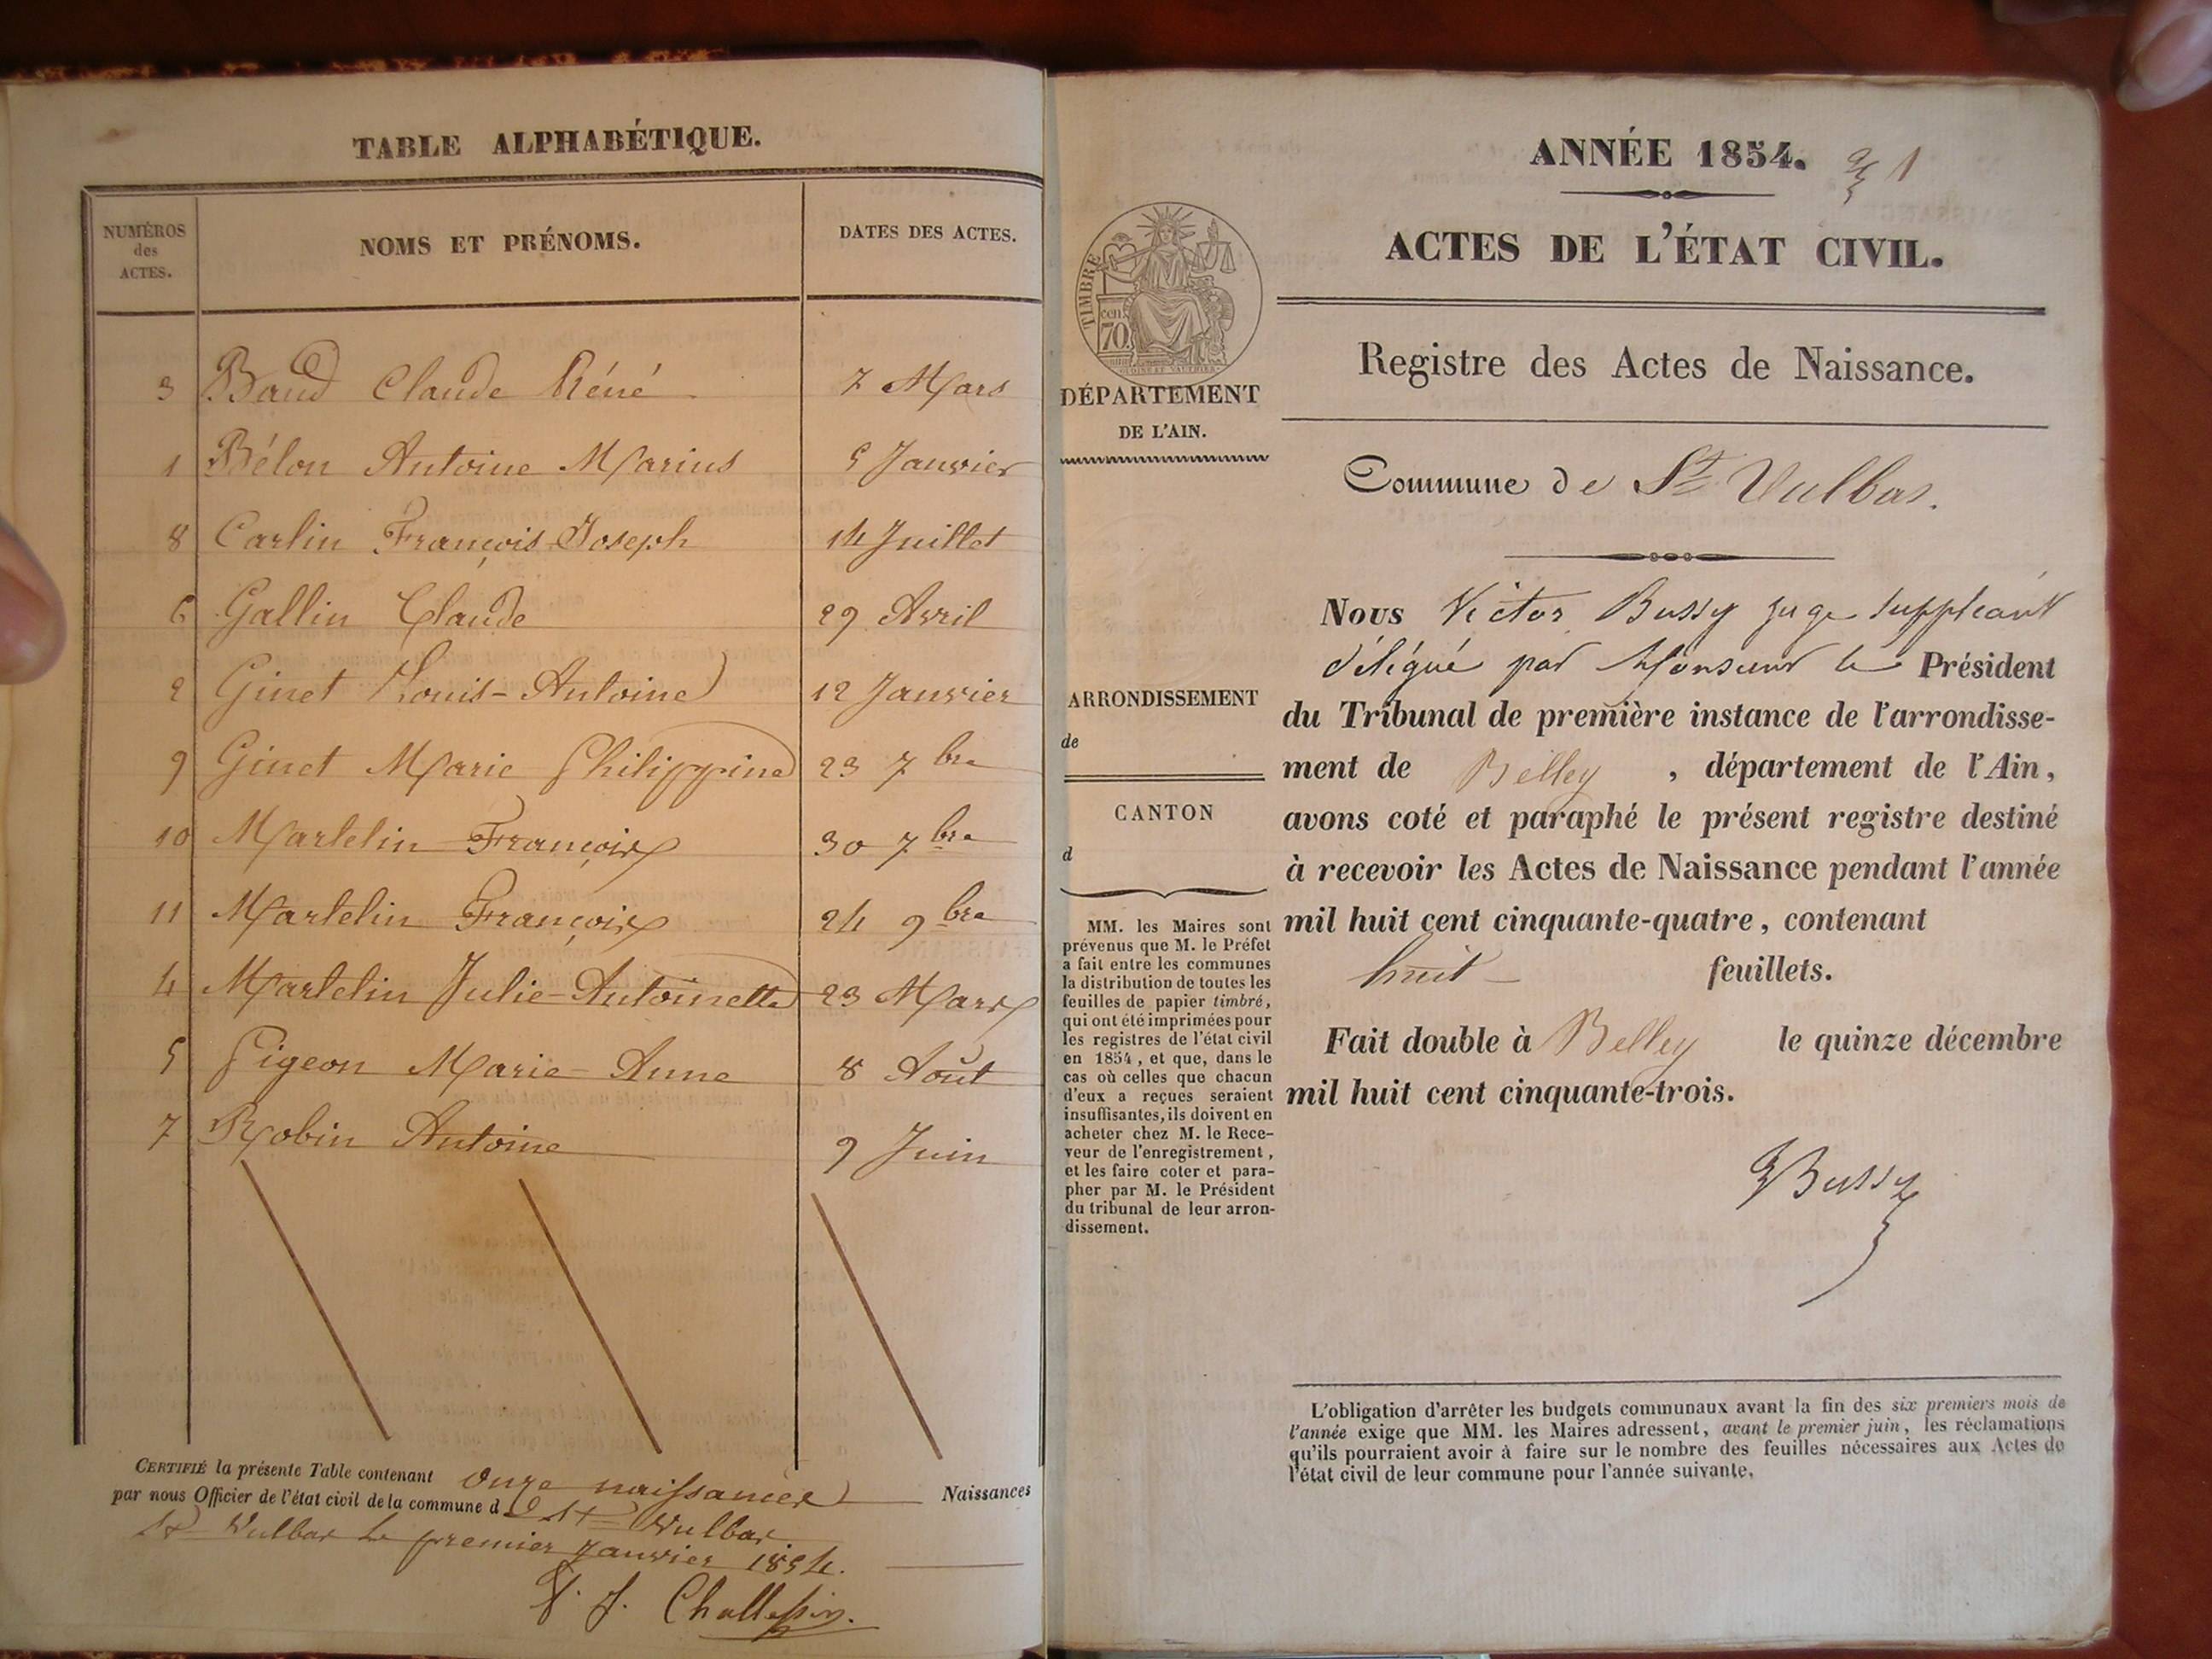 TABLE ALPHABÉTIQUE.
NUMÉROS des ACTES. NOMS ET PRÉNOMS. DATES DES ACTES.
3 Baud Claude Réné 7 Mars
1 Bélon Antoine Marius 5 Janvier
8 Carlin François Joseph 14 Juillet
6 Gallin Claude 29 Avril
2 Ginet Louis-Antoine 12 Janvier
9 Ginet Marie Philippine 23 7bre
10 Martelin François 30 7bre
11 Martelin François 24 9bre
4 Martelin Julie-Antoinette 23 Mars
5 Pigeon Marie-Anne 8 Août
7 Robin Antoine 9 Juin
CERTIFIÉ la présente Table contenant Onze naissances Naissances
par nous Officier de l'état civil de la commune d e St Vulbas
St Vulbas Le premier Janvier 1854.
ANNÉE 1854. 1
ACTES DE L'ÉTAT CIVIL.
TIMBRE
cen.
70
DÉPARTEMENT
DE L'AIN.
Registre des Actes de Naissance.
Commune de St Vulbas.
ARRONDISSEMENT
de
CANTON
d
MM. les Maires sont
prévenus que M. le Préfet
a fait entre les communes
la distribution de toutes les
feuilles de papier timbré,
qui ont été imprimées pour
les registres de l'état civil
en 1854, et que, dans le
cas où celles que chacun
d'eux a reçues seraient
insuffisantes, ils doivent en
acheter chez M. le Rece-
veur de l'enregistrement,
et les faire coter et para-
pher par M. le Président
du tribunal de leur arron-
dissement.
Nous Victor Bussy juge suppléant
délégué par Monsieur le Président
du Tribunal de première instance de l'arrondisse-
ment de Belley, département de l'Ain,
avons coté et paraphé le présent registre destiné
à recevoir les Actes de Naissance pendant l'année
mil huit cent cinquante-quatre, contenant
huit feuillets.
Fait double à Belley le quinze décembre
mil huit cent cinquante-trois.
Bussy
L'obligation d'arrêter les budgets communaux avant la fin des six premiers mois de
l'année exige que MM. les Maires adressent, avant le premier juin, les réclamations
qu'ils pourraient avoir à faire sur le nombre des feuilles nécessaires aux Actes de
l'état civil de leur commune pour l'année suivante.